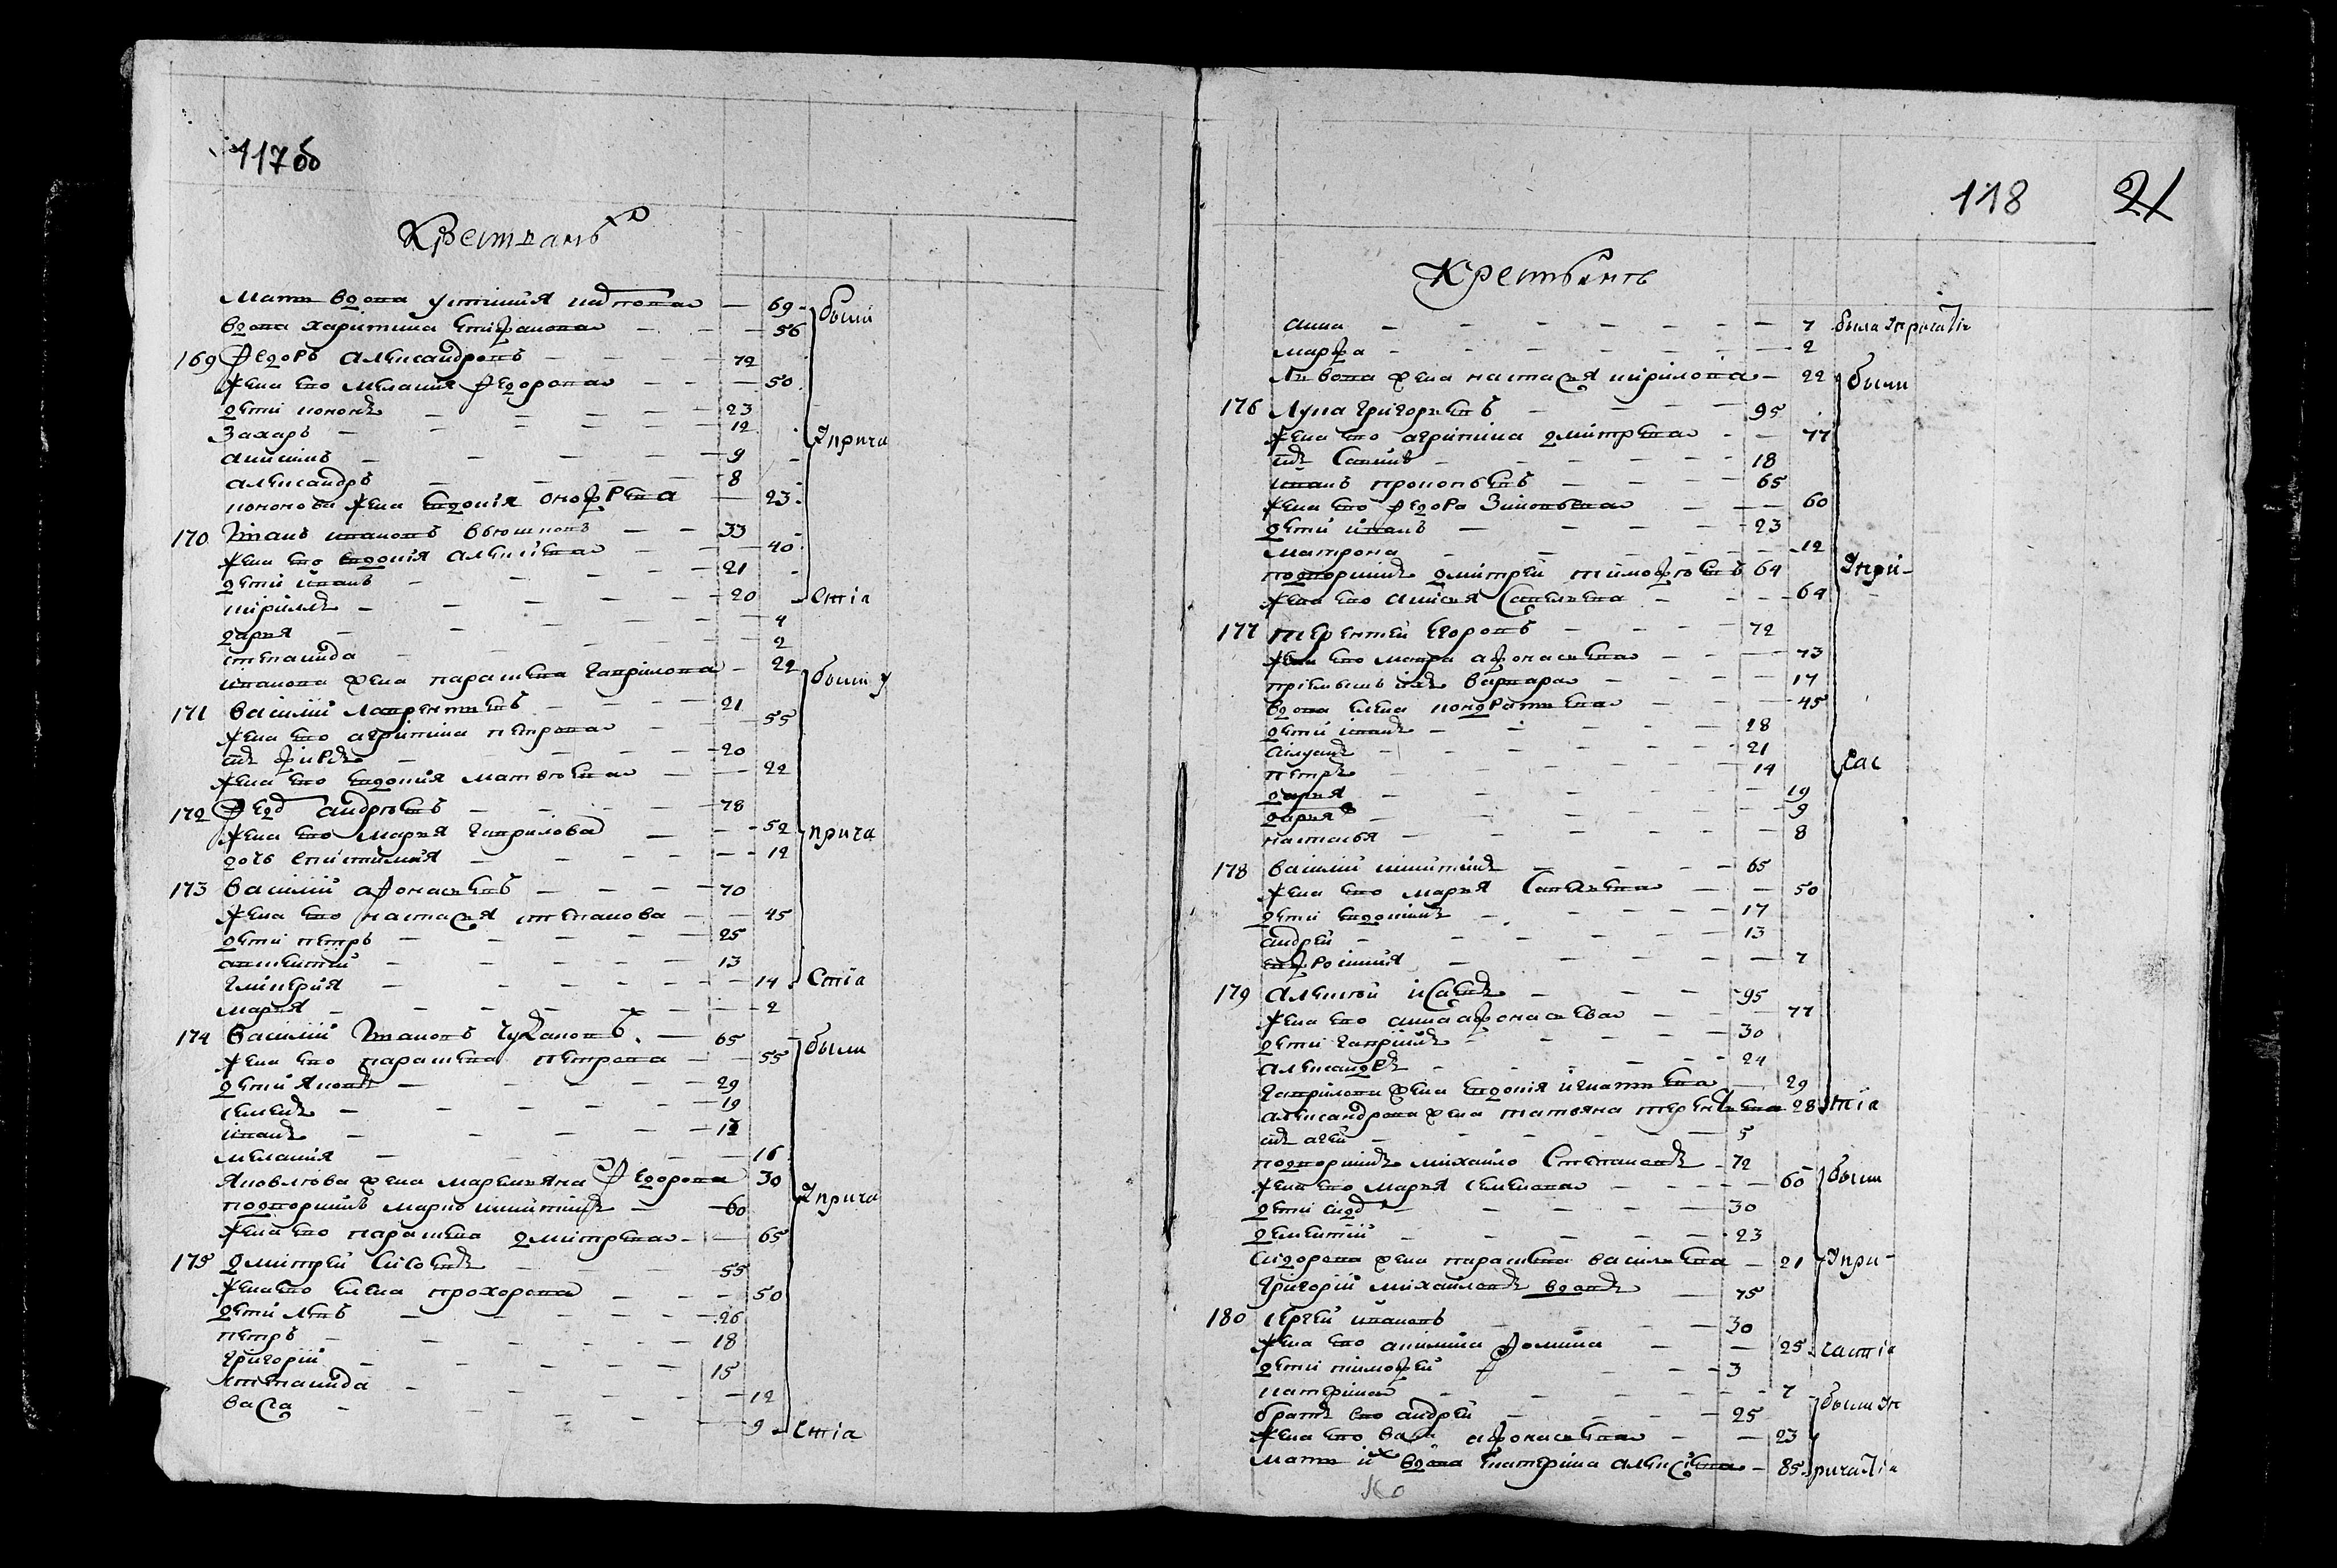 117об
Крестьянъ
Мати вдова устиния иванова — 69 были
вдова харитина епифанова — 56
169 Федоръ александровъ — 72
Жена ево мелания Федорова — 50
дети кононъ — 23
Захаръ — 12 у прича
аникииъ — 9
александръ — 8
кононова жена евдокия онофрева — 23
170 Иванъ ивановъ — 33
Жена ево евдокия алексеева — 40
дети иванъ — 21
кирилъ — 20 стиа
дарья — 4
степанида — 2
иванова жена парасковья гаврилова — 22 были у
171 василий лаврентиевъ — 21
жена ево агрипина петрова — 55
сынъ — 20
жена ево евдокия матвеева — 22
172 Федъ андреевъ — 78
Жена ево марья гаврилова — 52 прича
дочь — 12
173 василий афонасьевъ — 70
Жена ево настасья степанова — 45
дети петръ — 25
— 13
гликерия — 14 стиа
марья — 2
174 василий Ивановъ — 65
Жена ево парасковья петрова — 55 были
дети яковъ — 29
семенъ — 19
иванъ — 12
мелания — 16
яковлева жена маремьяна Федорова 30 у прича
подворникъ маркъ никитинъ — 60
Жена ево парасковья дмитрева — 65
175 дмитрей — 55
Жена ево елена прохорова — 50
дети левъ — 26
петръ — 18
григорий — 15
степанида — 12
васса — 9 стиа
118 21
Крестьянъ
анна — 7 была у причастiя
марфа — 2
львова жена настасья кирилова — 22 были
176 Лупа григорьевъ — 95
жена ево агрипина дмитрева — 77
сынъ — 18
иванъ прокопьевъ — 65
Жена ево федора Зиновьева — 60
дети иванъ — 23
матрона — 12
подворникъ дмитрей тимофеевъ 64 у при
жена ево анисья савельева — 64
177 терентей егоровъ — 72
жена ево мавра афонасьева — 73
приемышъ ихъ варвара — 17
вдова елена кондратьева — 45
дети иванъ — 28
силуанъ — 21
петръ — 14 час
дарья — 19
дарья — 9
настасья — 8
178 василий никитинъ — 65
Жена ево марья савельева — 50
дети евдокимъ — 17
андрей — 13
евфросиния — 7
179 алексей исаевъ — 95
Жена ево анна афонасьева — 77
дети гаврилъ — 30
александръ — 24
гаврилова жена евдокия игнатьева — 29
александрова жена татьяна терентьева 28 стиа
сынъ агей — 5
подворникъ михайло Степановъ — 72
Жена ево марья семенова — 60 были
дети сидоръ — 30
дементий — 23
сидорова жена парасковья васильева — 21 у при
григорий михайловъ вдовъ — 75
180 сергей ивановъ — 30
жена ево акилина фомина — 25 частiа
дети тимофей — 3
катерина — 7
братъ ево андрей — 25 были у п
Жена ево васа афонасьева — 23
мати ихъ вдова катерина алексеева — 85 ричастiа